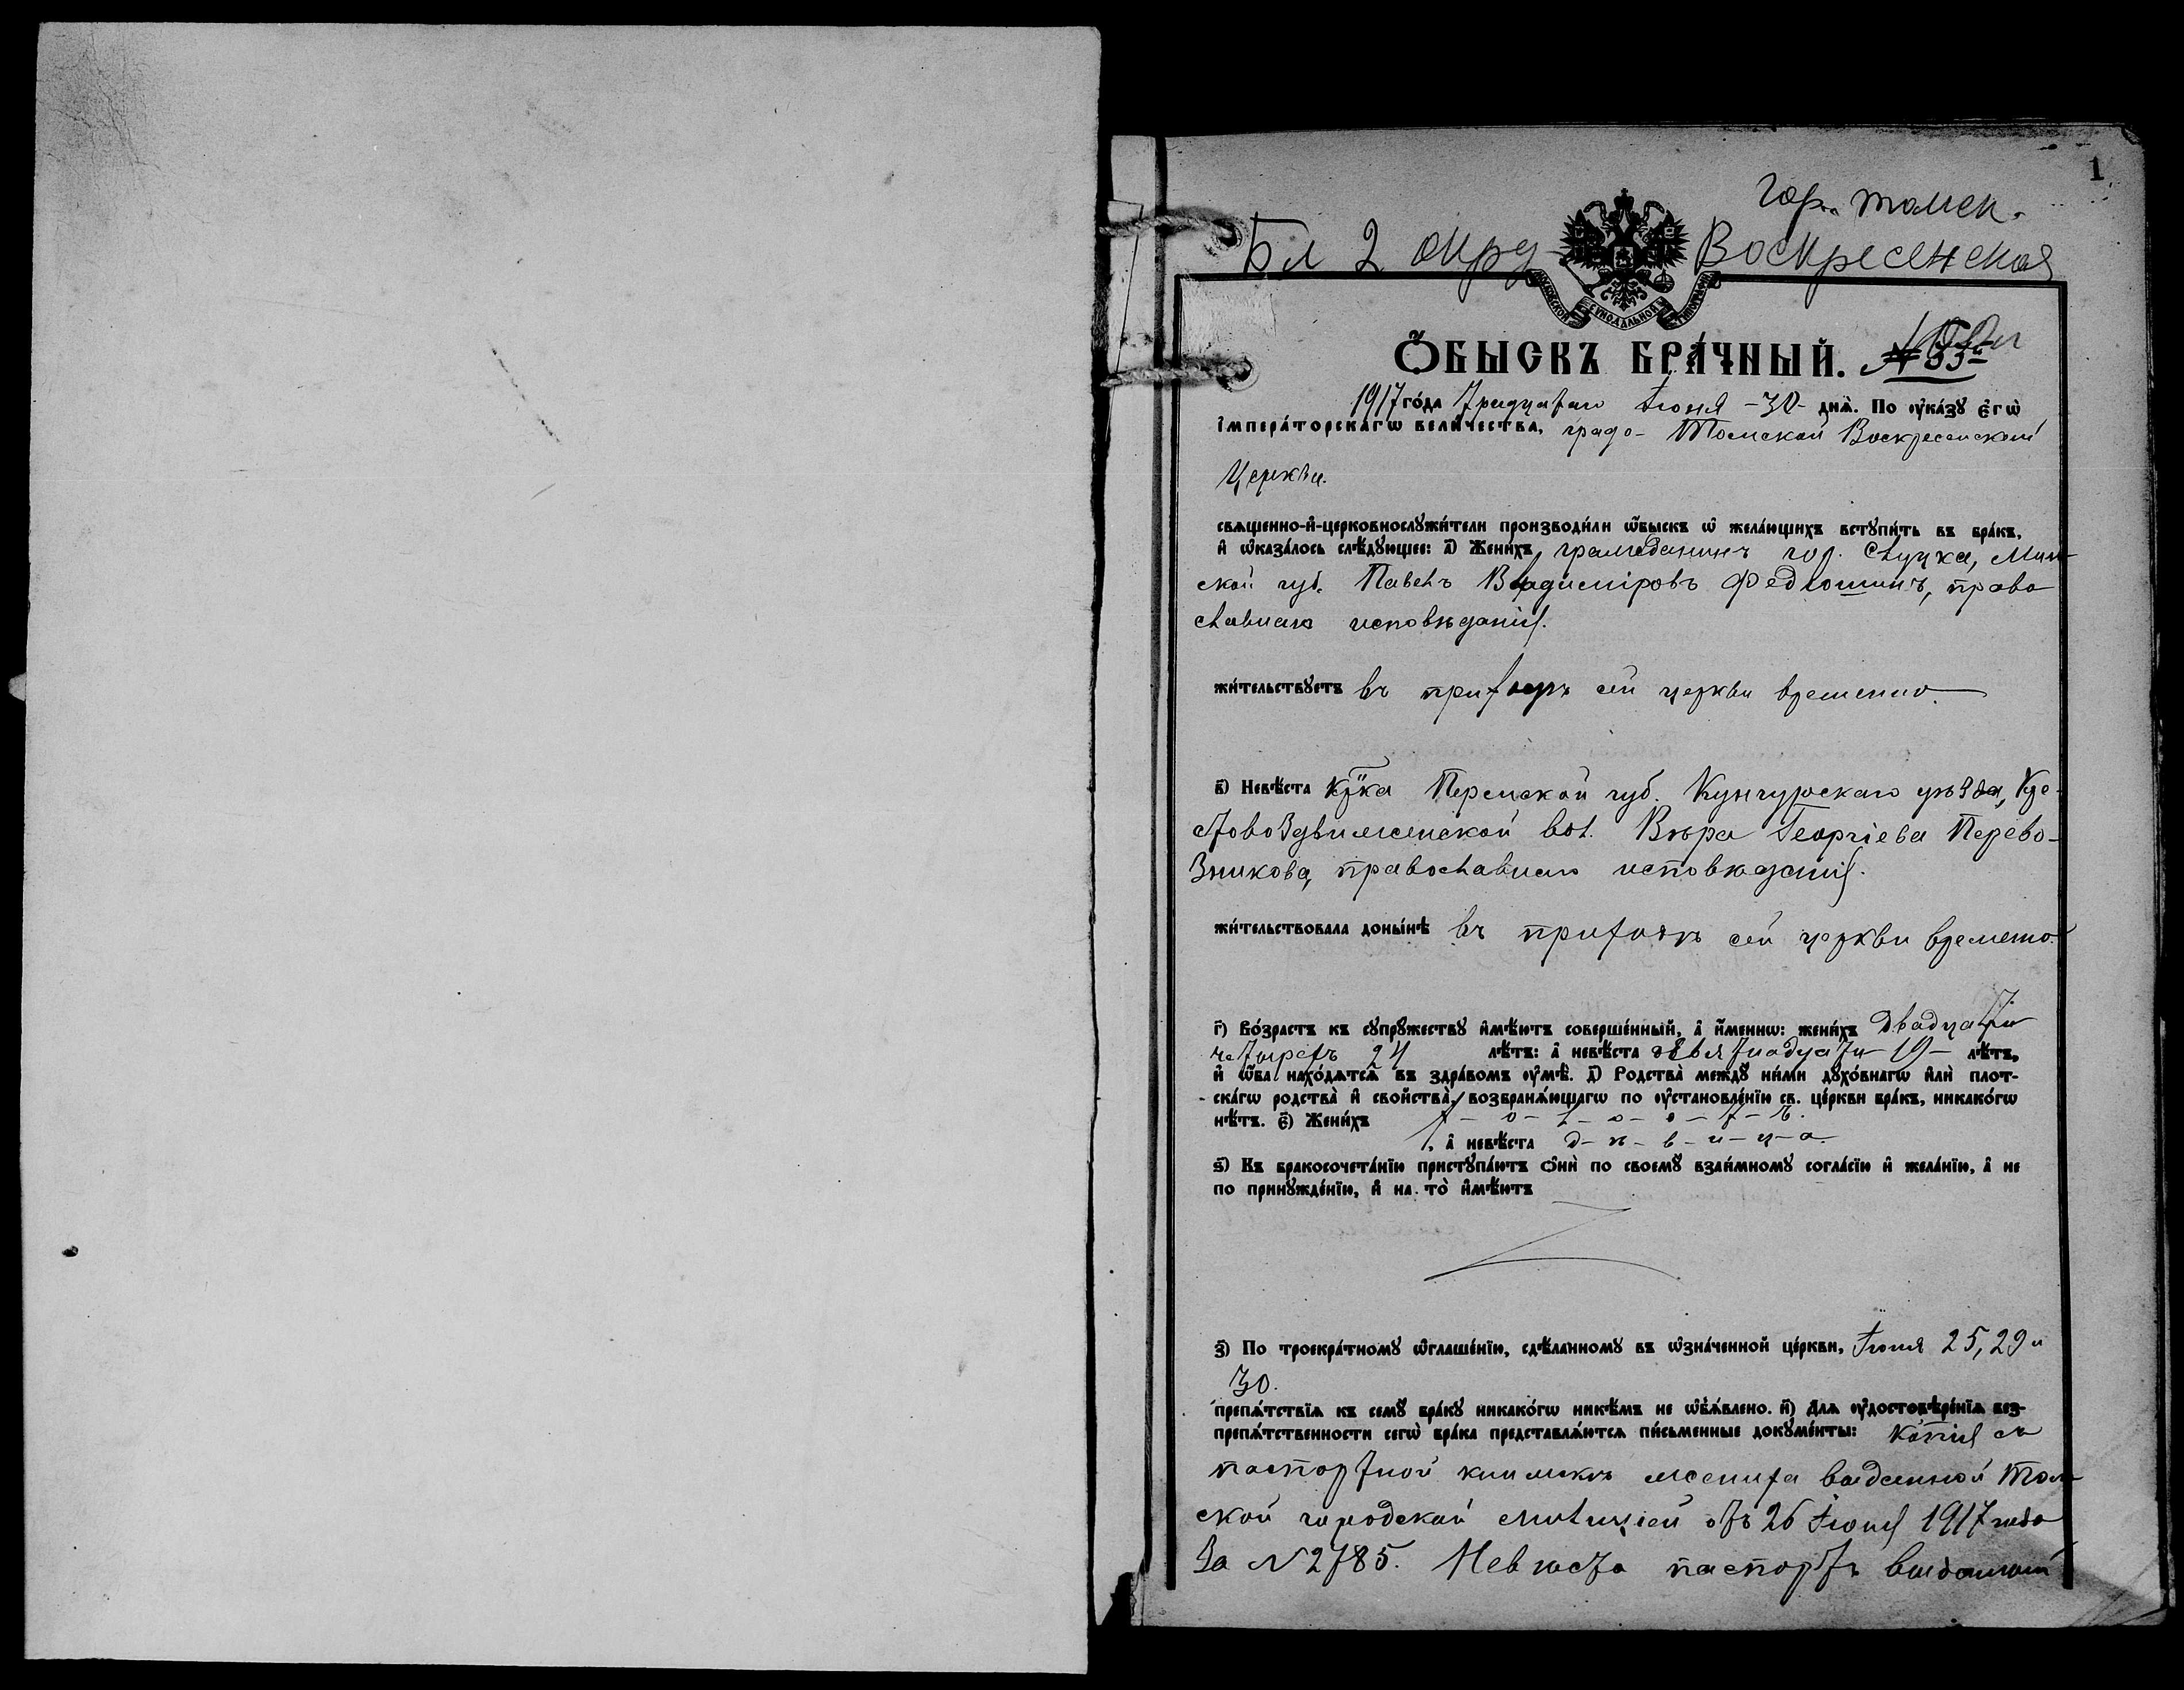 1
гор. Томск.
Бл 2 окру Воскресенская
МОСКОВСКОЙ СѴНОДАЛЬНОЙ ТИПОГРАФІИ
Ѻ҆БЫСКЪ БРА́ЧНЫЙ. № 53
1917 го́да Тридцатаго Іюня -30- днѧ̀. По ᲂу҆ка́зꙋ є҆гѡ̀
і҆мпера́торскагѡ вели́чества, градо- Томской Воскресенской
Церкви.
свѧщенно-и҆-церковнослꙋжи́тели производи́ли ѡ҆́быскъ ѡ҆ жела́ющихъ встꙋпи́ть въ бра́къ,
и҆ ѡ҆каза́лось слѣ́дꙋющее: а҃) Жени́хъ гражданинъ гор. Слуцка, Мин-
ской губ. Павелъ Владиміровъ Федюшинъ, право
славнаго исповѣданія.
жи́тельствꙋетъ въ приходѣ сей церкви временно.
в҃) Невѣ́ста кр҃ка Пермской губ. Кунгурскаго уѣзда, Кре-
стовоздвиженской вол. Вѣра Георгіева Перево-
зникова, православнаго исповѣданія.
жи́тельствовала доны́нѣ въ приходѣ сей церкви временно.
г҃) Во́зрастъ къ сꙋпрꙋ́жествꙋ и҆мѣ́ютъ соверше́нный, а҆ и҆́меннѡ: жени́хъ двадцати
четырехъ 24 лѣ́тъ: а҆ невѣ́ста девятнадцати -19- лѣ́тъ,
и҆ ѡ҆́ба нахо́дѧтсѧ въ здра́вомъ ᲂу҆мѣ̀. д҃) Родства̀ междꙋ̀ ни́ми дꙋхо́внагѡ и҆лѝ плот-
ска́гѡ родства̀ и҆ свойства̀, возбранѧ́ющагѡ по ᲂу҆становле́нїю св. це́ркви бра́къ, никако́гѡ
нѣ́тъ. є҃) Жени́хъ х-о-л-о-с-т-ъ.
, а҆ невѣ́ста д-ѣ-в-и-ц-а.
ѕ҃) Къ бракосочета́нїю пристꙋпа́ютъ ѻ҆нѝ по своемꙋ̀ взаи́мномꙋ согла́сїю и҆ жела́нїю, а҆ не
по принꙋжде́нїю, и҆ на то̀ и҆мѣ́ютъ
з҃) По троекра́тномꙋ ѡ҆глаше́нїю, сдѣ́ланномꙋ въ ѡ҆зна́ченной це́ркви, Іюня 25, 29 и
30.
препѧ́тствїѧ къ семꙋ̀ бра́кꙋ никако́гѡ никѣ́мъ не ѡ҆бѧ́влено. и҃) Длѧ ᲂу҆достовѣре́нїѧ без-
препѧ́тственности сегѡ̀ бра́ка представлѧ́ютсѧ пи́сьменные докꙋме́нты: Копія съ
паспортной книжки жениха выданной Том-
ской городской милиціей отъ 26 Іюня 1917 года
за N 2785. Невѣста паспортъ выданный